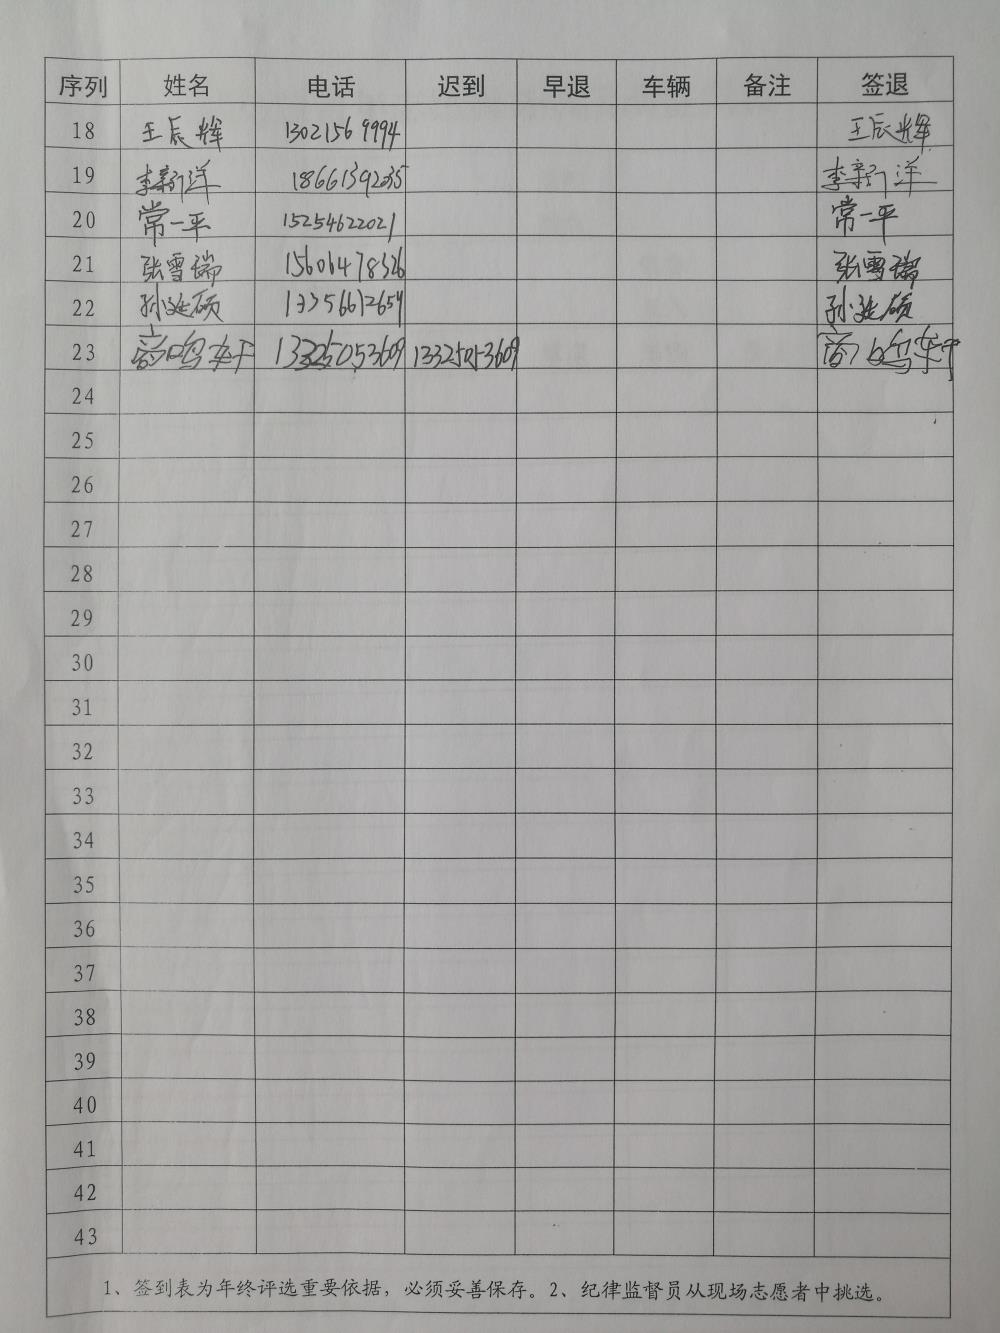 序列 姓名 电话 迟到 早退 车辆 备注 签退
18 王辰辉 13021569994 王辰辉
19 李新洋 18661392035 李新洋
20 常一平 15254622021 常一平
21 张雪瑞 15606478326 张雪瑞
22 孙延硕 13356612654 孙延硕
23 商鸣轩 13325053609 13325053609 商鸣轩
24
25
26
27
28
29
30
31
32
33
34
35
36
37
38
39
40
41
42
43
1、签到表为年终评选重要依据，必须妥善保存。2、纪律监督员从现场志愿者中挑选。